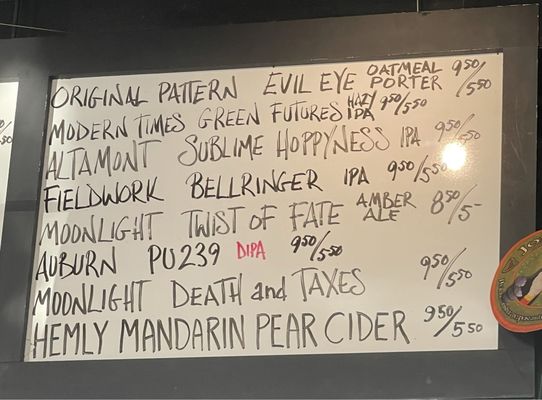 ORIGINAL PATTERN EVIL EYE OATMEAL PORTER 9⁵⁰/5⁵⁰
MODERN TIMES GREEN FUTURES HAZY IPA 9⁵⁰/5⁵⁰
ALTAMONT SUBLIME HOPPYNESS IPA 9⁵⁰/5⁵⁰
FIELDWORK BELLRINGER IPA 9⁵⁰/5⁵⁰
MOONLIGHT TWIST OF FATE AMBER ALE 8⁵⁰/5-
AUBURN PU239 DIPA 9⁵⁰/5⁵⁰
MOONLIGHT DEATH and TAXES 9⁵⁰/5⁵⁰
HEMLY MANDARIN PEAR CIDER 9⁵⁰/5⁵⁰